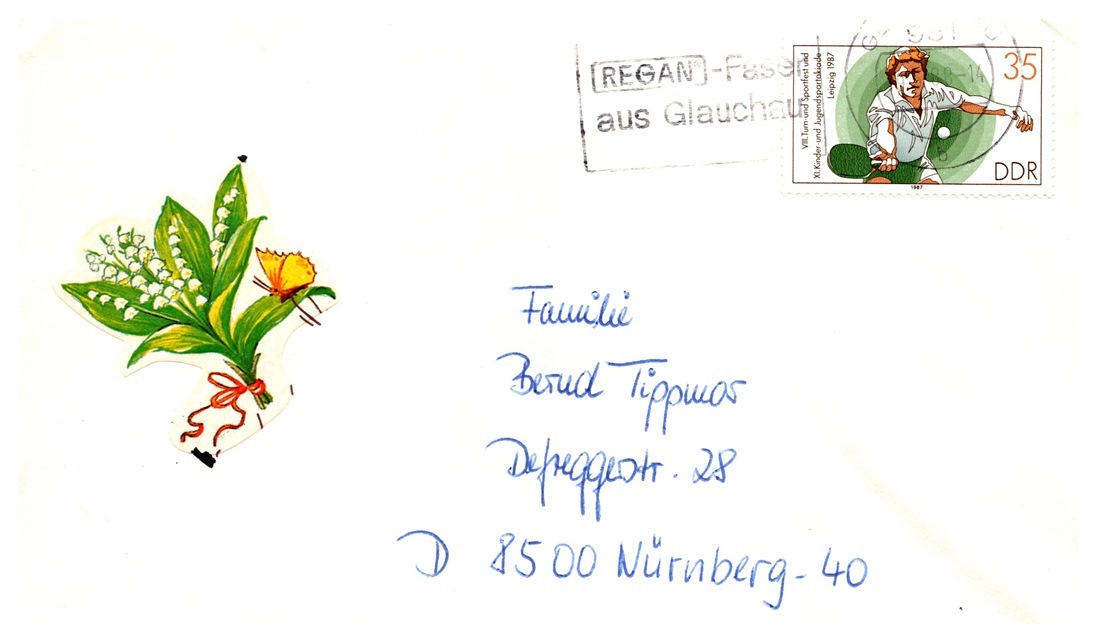 [REGAN]-Faser
aus Glauchau
VIII. Turn- und Sportfest und
XI. Kinder- und Jugendspartakiade
Leipzig 1987
35
DDR
1987
Familie
Bernd Tippmar
Defreggerstr. 28
D 8500 Nürnberg-40